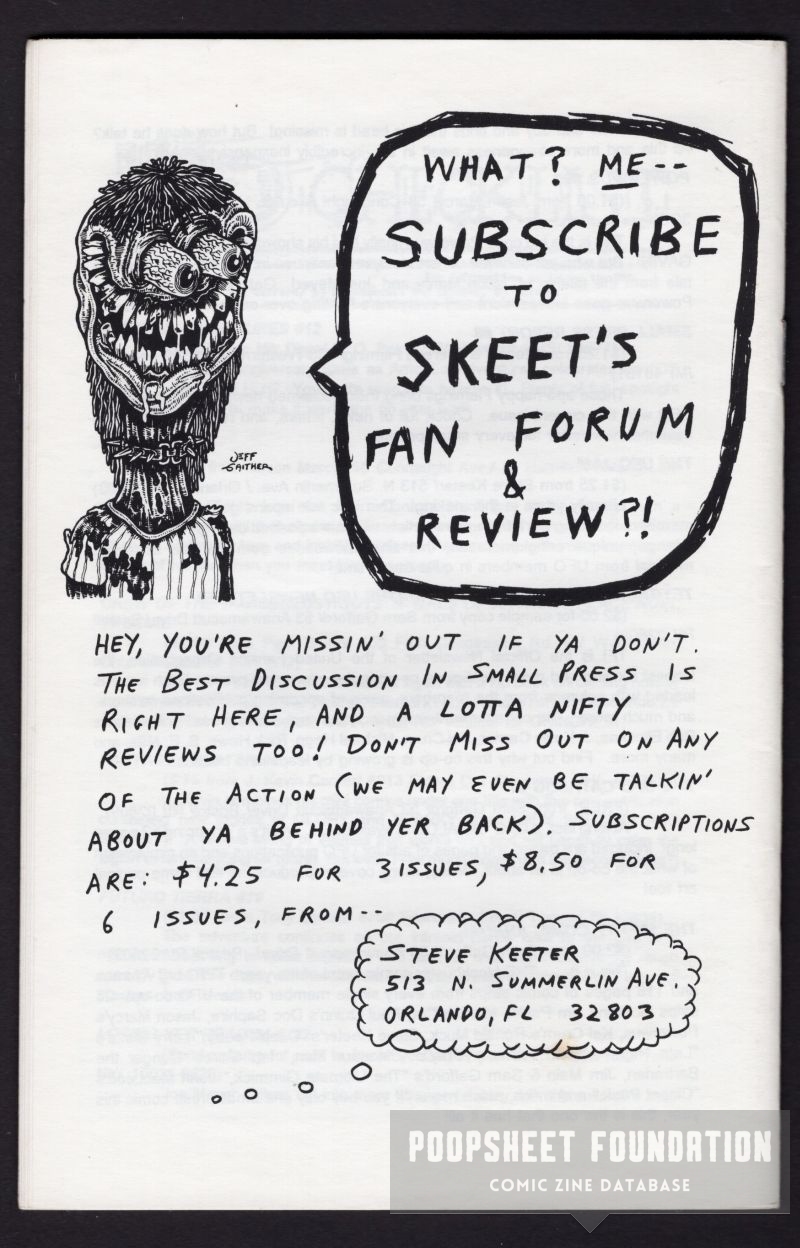 WHAT? ME--
SUBSCRIBE
TO
SKEET'S
FAN FORUM
&
REVIEW?!
JEFF
GAITHER
HEY, YOU'RE MISSIN' OUT IF YA DON'T.
THE BEST DISCUSSION IN SMALL PRESS IS
RIGHT HERE, AND A LOTTA NIFTY
REVIEWS TOO! DON'T MISS OUT ON ANY
OF THE ACTION (WE MAY EVEN BE TALKIN'
ABOUT YA BEHIND YER BACK). SUBSCRIPTIONS
ARE: $4.25 FOR 3 ISSUES, $8.50 FOR
6 ISSUES, FROM--
STEVE KEETER
513 N. SUMMERLIN AVE.
ORLANDO, FL 32803
POOPSHEET FOUNDATION
COMIC ZINE DATABASE